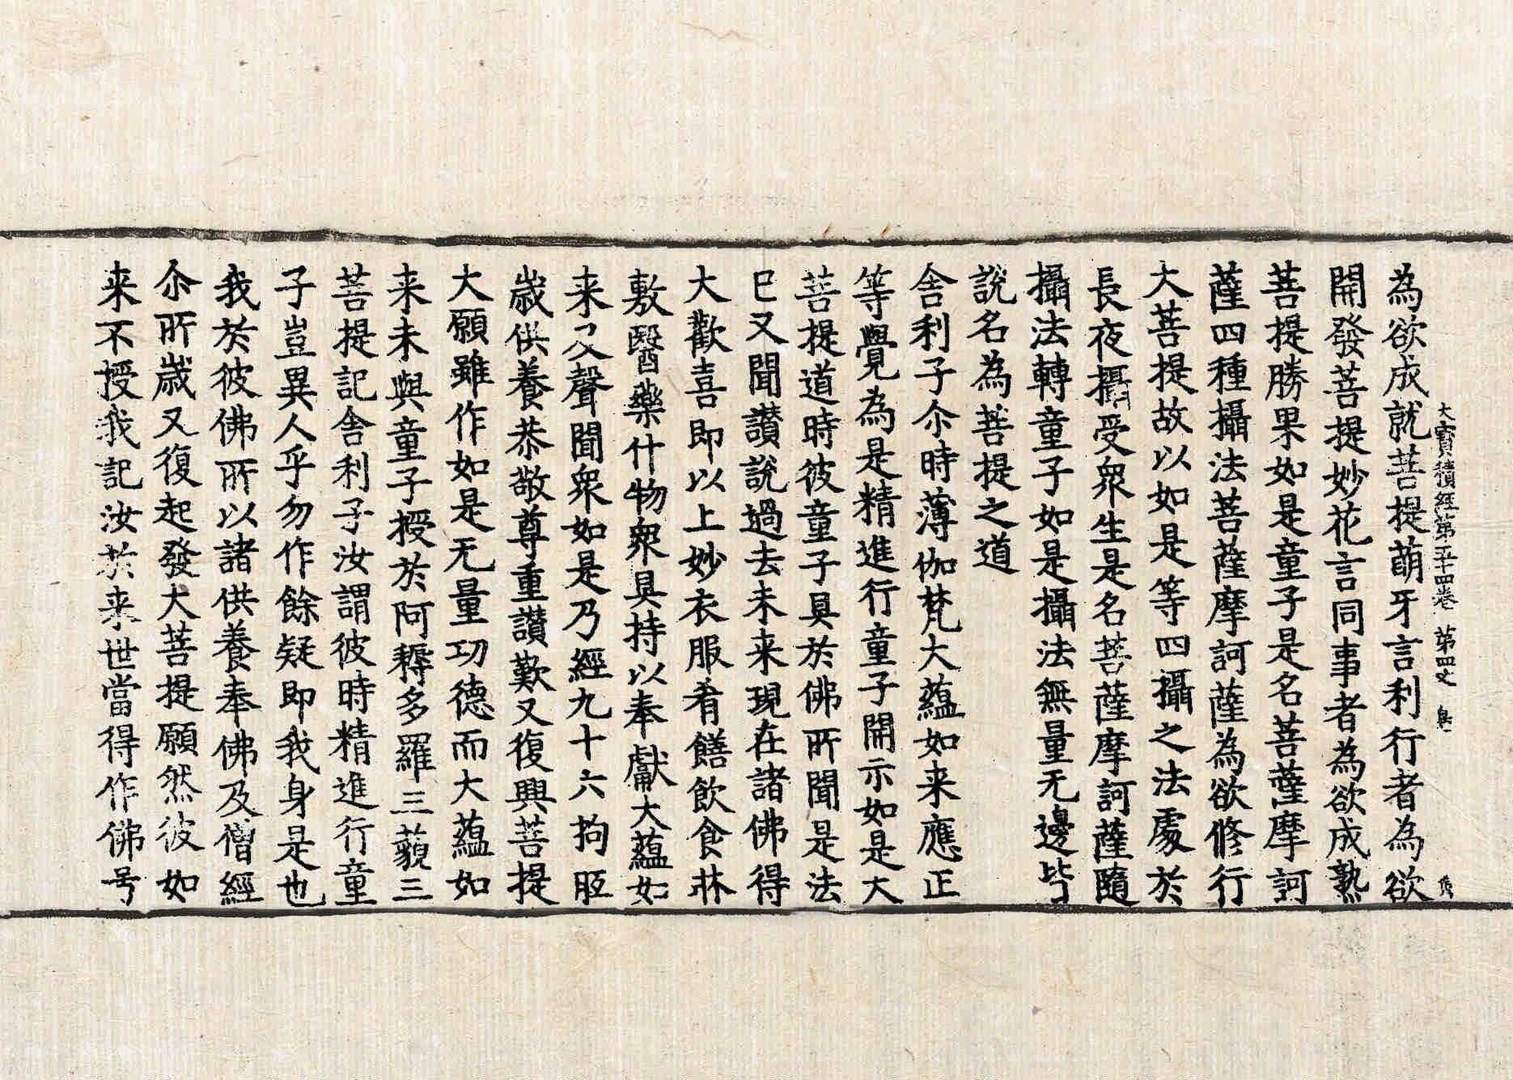 大寶積經第五十四卷 第四丈 鳥
為欲成就菩提萌牙言利行者為欲
開發菩提妙花言同事者為欲成熟
菩提勝果如是童子是名菩薩摩訶
薩四種攝法菩薩摩訶薩為欲修行
大菩提故以如是等四攝之法處於
長夜攝受衆生是名菩薩摩訶薩隨
攝法轉童子如是攝法無量无邊皆
說名為菩提之道
舎利子尒時薄伽梵大蘊如来應正
等覺為是精進行童子開示如是大
菩提道時彼童子具於佛所聞是法
已又聞讃說過去未来現在諸佛得
大歡喜即以上妙衣服肴饍飲食牀
敷醫藥什物衆具持以奉獻大蘊如
来及聲聞衆如是乃經九十六拘胝
歲供養恭敬尊重讃歎又復興菩提
大願雖作如是无量功德而大蘊如
来未與童子授於阿耨多羅三藐三
菩提記舎利子汝謂彼時精進行童
子豈異人乎勿作餘疑即我身是也
我於彼佛所以諸供養奉佛及僧經
尒所歲又復起發大菩提願然彼如
来不授我記汝於来世當得作佛号